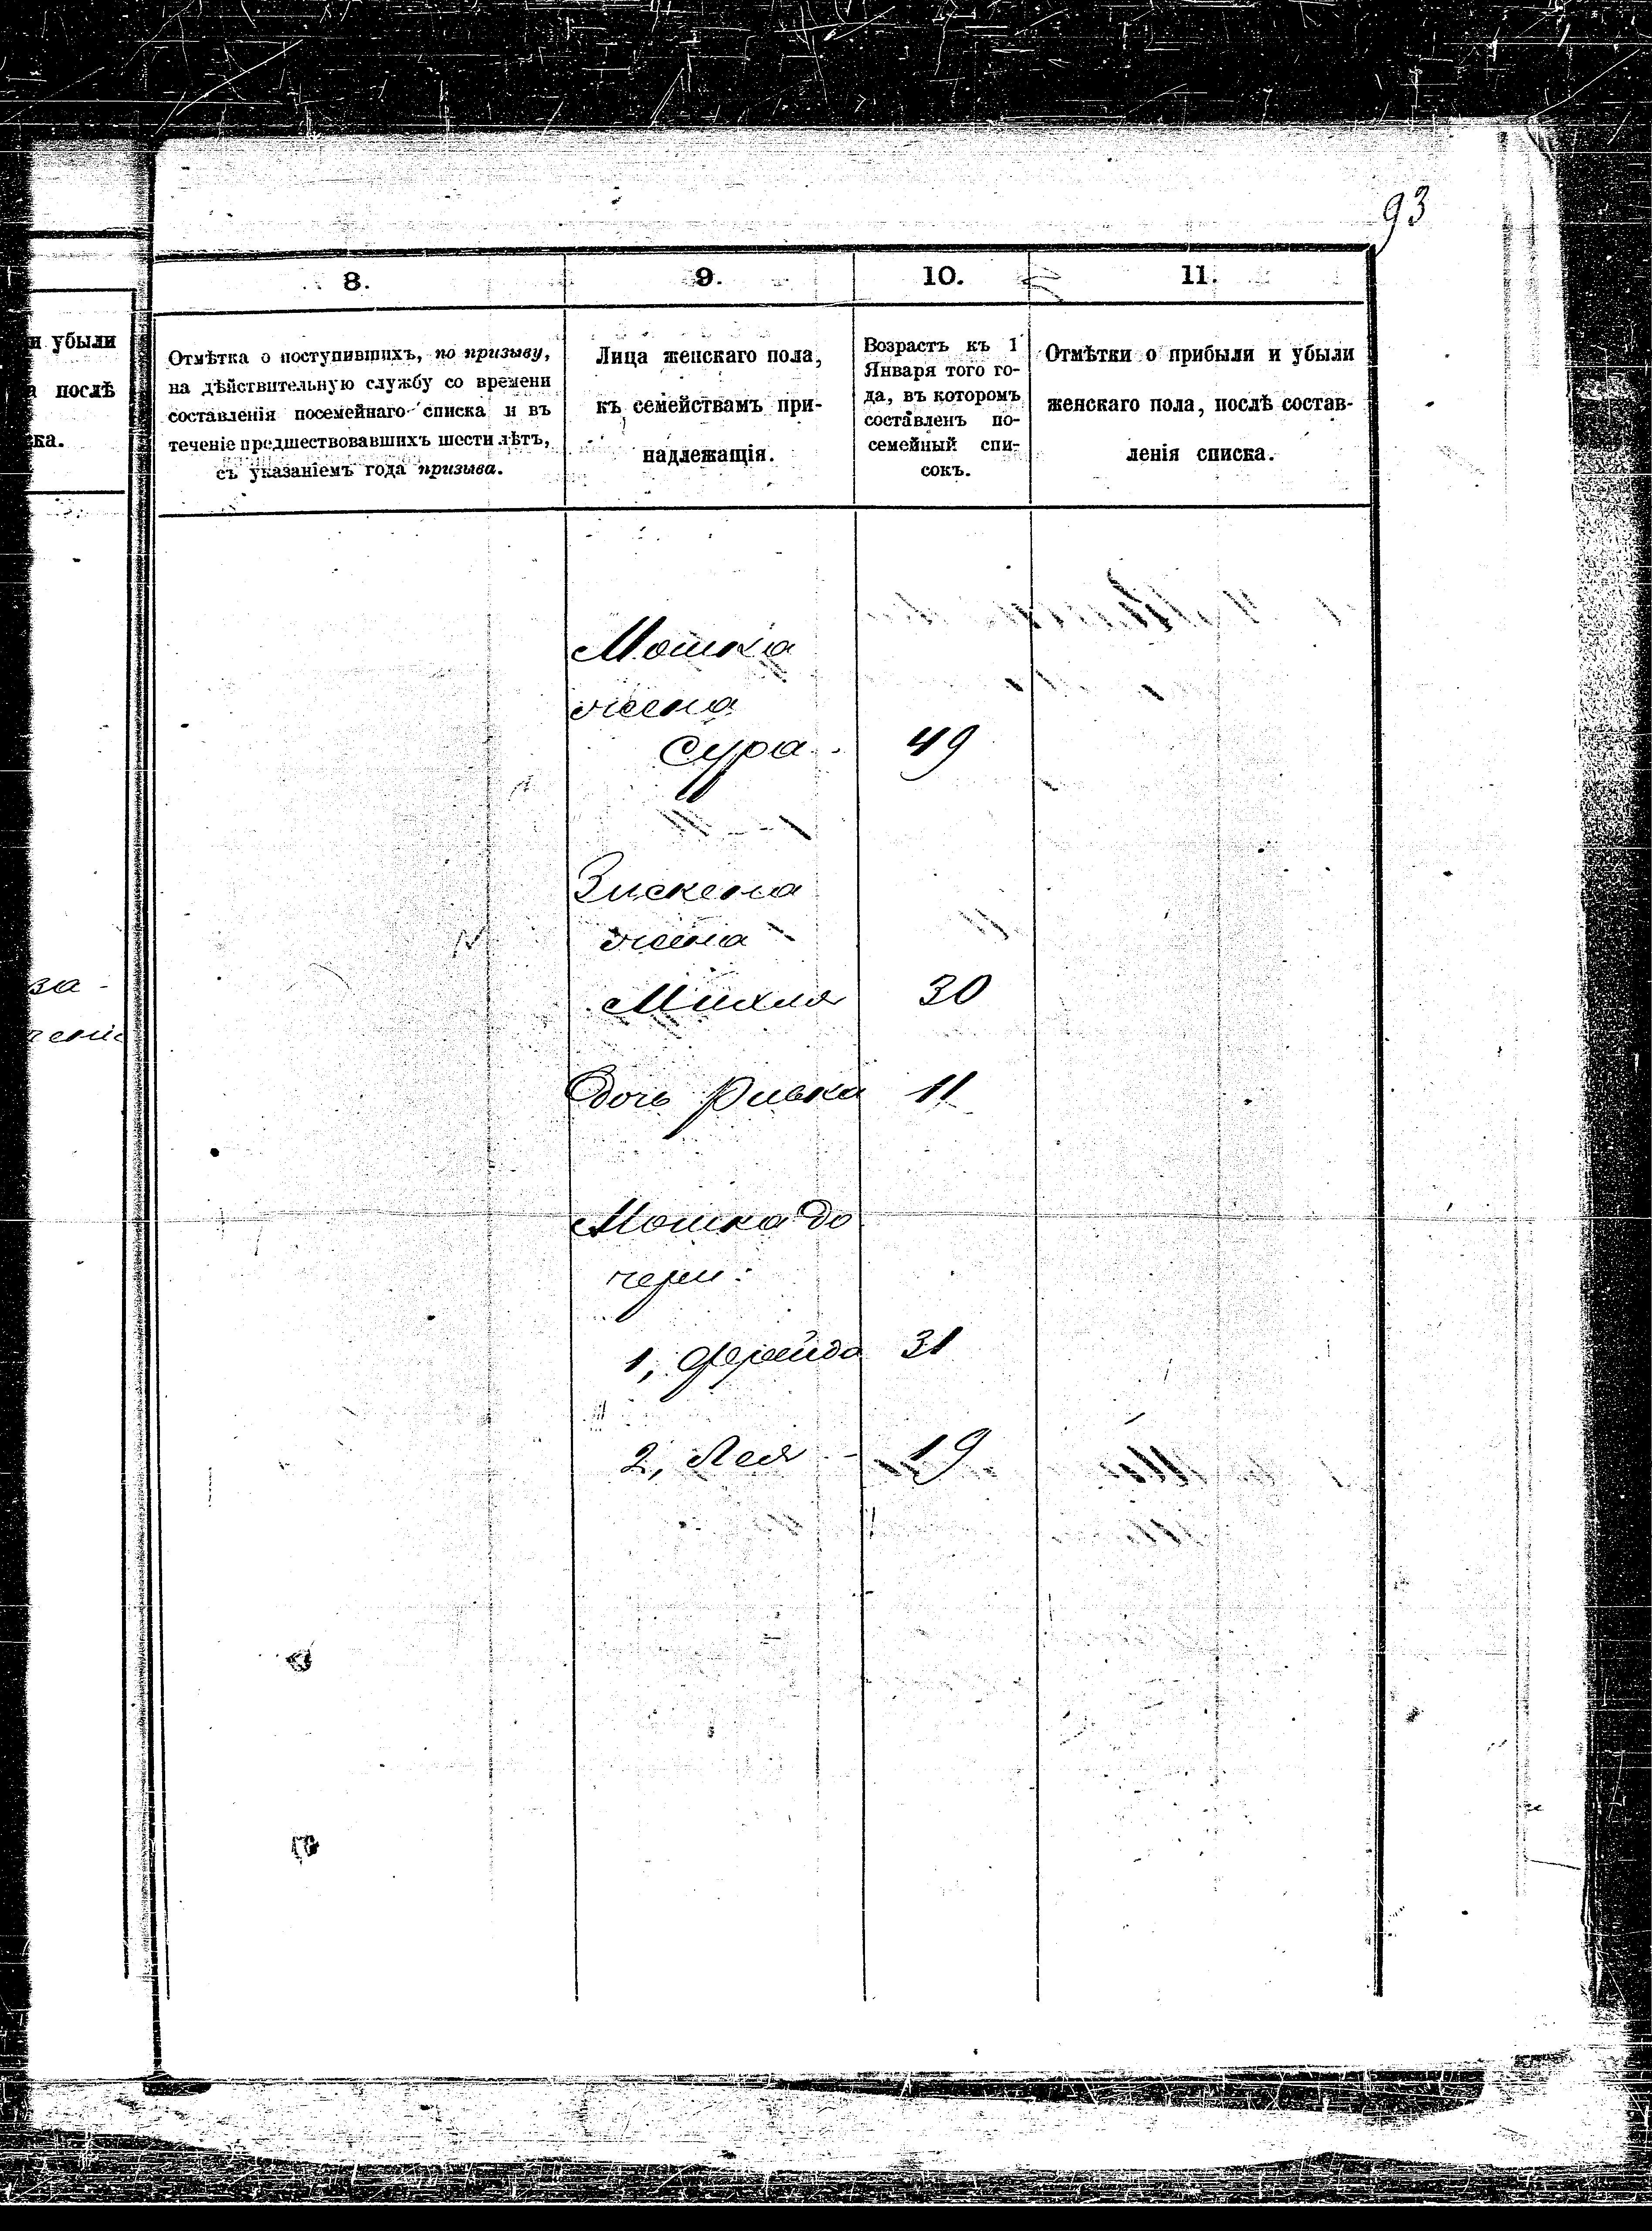 93
и убыли
послѣ
ка.
за-
8.
9.
10.
11.
Отмѣтка о поступившихъ, по призыву,
на дѣйствительную службу со времени
составленія посемейнаго списка и въ
теченіе предшествовавшихъ шести лѣтъ,
съ указаніемъ года призыва.
Лица женскаго пола,
къ семействамъ при-
надлежащія.
Возрастъ къ 1
Января того го-
да, въ которомъ
составленъ по-
семейный спи-
сокъ.
Отмѣтки о прибыли и убыли
женскаго пола, послѣ состав-
ленія списка.
Мошка
жена
Сура - 49
Зискена
жена
Михля 30
Дочь Ривка 11
Мошка до
чери:
1, Фрейда 31
2, Лея - 19